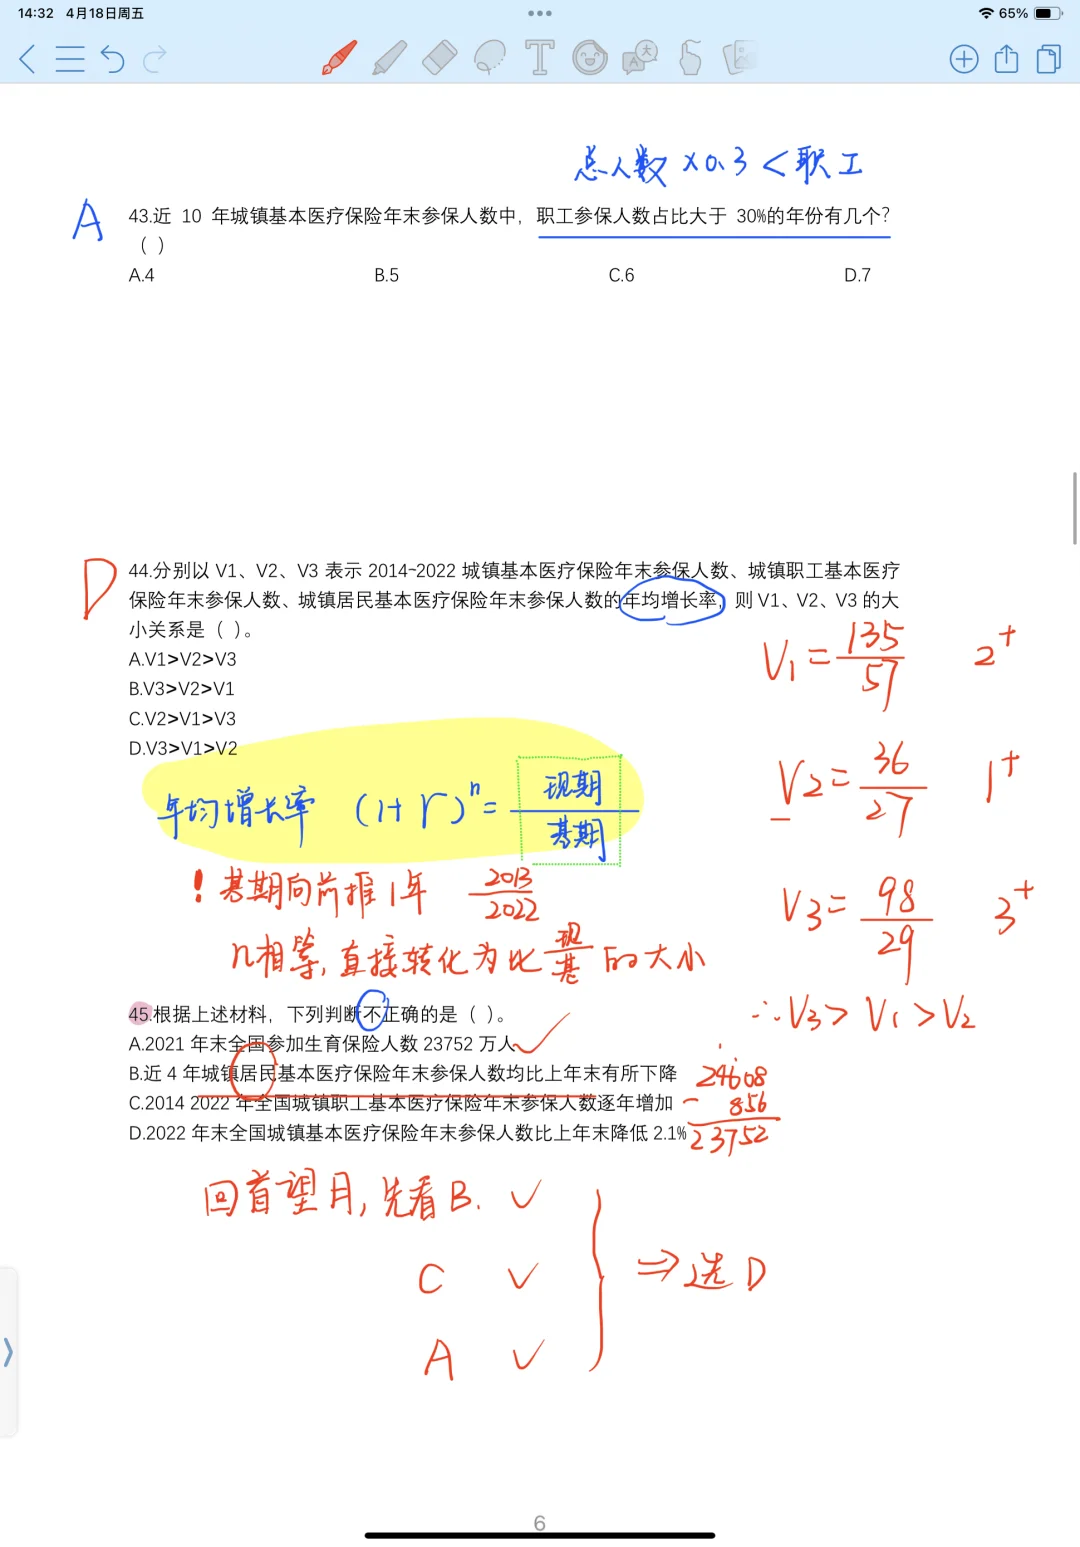 14:32 4月18日周五
65%
总人数 ×0.3 < 职工
A
43.近 10 年城镇基本医疗保险年末参保人数中，职工参保人数占比大于 30%的年份有几个？
（ ）
A.4 B.5 C.6 D.7
D
44.分别以 V1、V2、V3 表示 2014~2022 城镇基本医疗保险年末参保人数、城镇职工基本医疗
保险年末参保人数、城镇居民基本医疗保险年末参保人数的年均增长率，则 V1、V2、V3 的大
小关系是（ ）。
A.V1>V2>V3
B.V3>V2>V1
C.V2>V1>V3
D.V3>V1>V2
V₁ = 135/57 2⁺
V2 = 36/27 1⁺
V3 = 98/29 3⁺
∴ V3 > V1 > V2
年均增长率 (1+r)ⁿ = 现期/基期
! 基期向前推1年 2013/2022
n相等, 直接转化为比 现/基 的大小
45.根据上述材料，下列判断不正确的是（ ）。
A.2021 年末全国参加生育保险人数 23752 万人
B.近 4 年城镇居民基本医疗保险年末参保人数均比上年末有所下降
C.2014 2022 年全国城镇职工基本医疗保险年末参保人数逐年增加
D.2022 年末全国城镇基本医疗保险年末参保人数比上年末降低 2.1%
24608
- 856
23752
回首望月, 先看B. ✓
C ✓
A ✓
⇒ 选 D
6